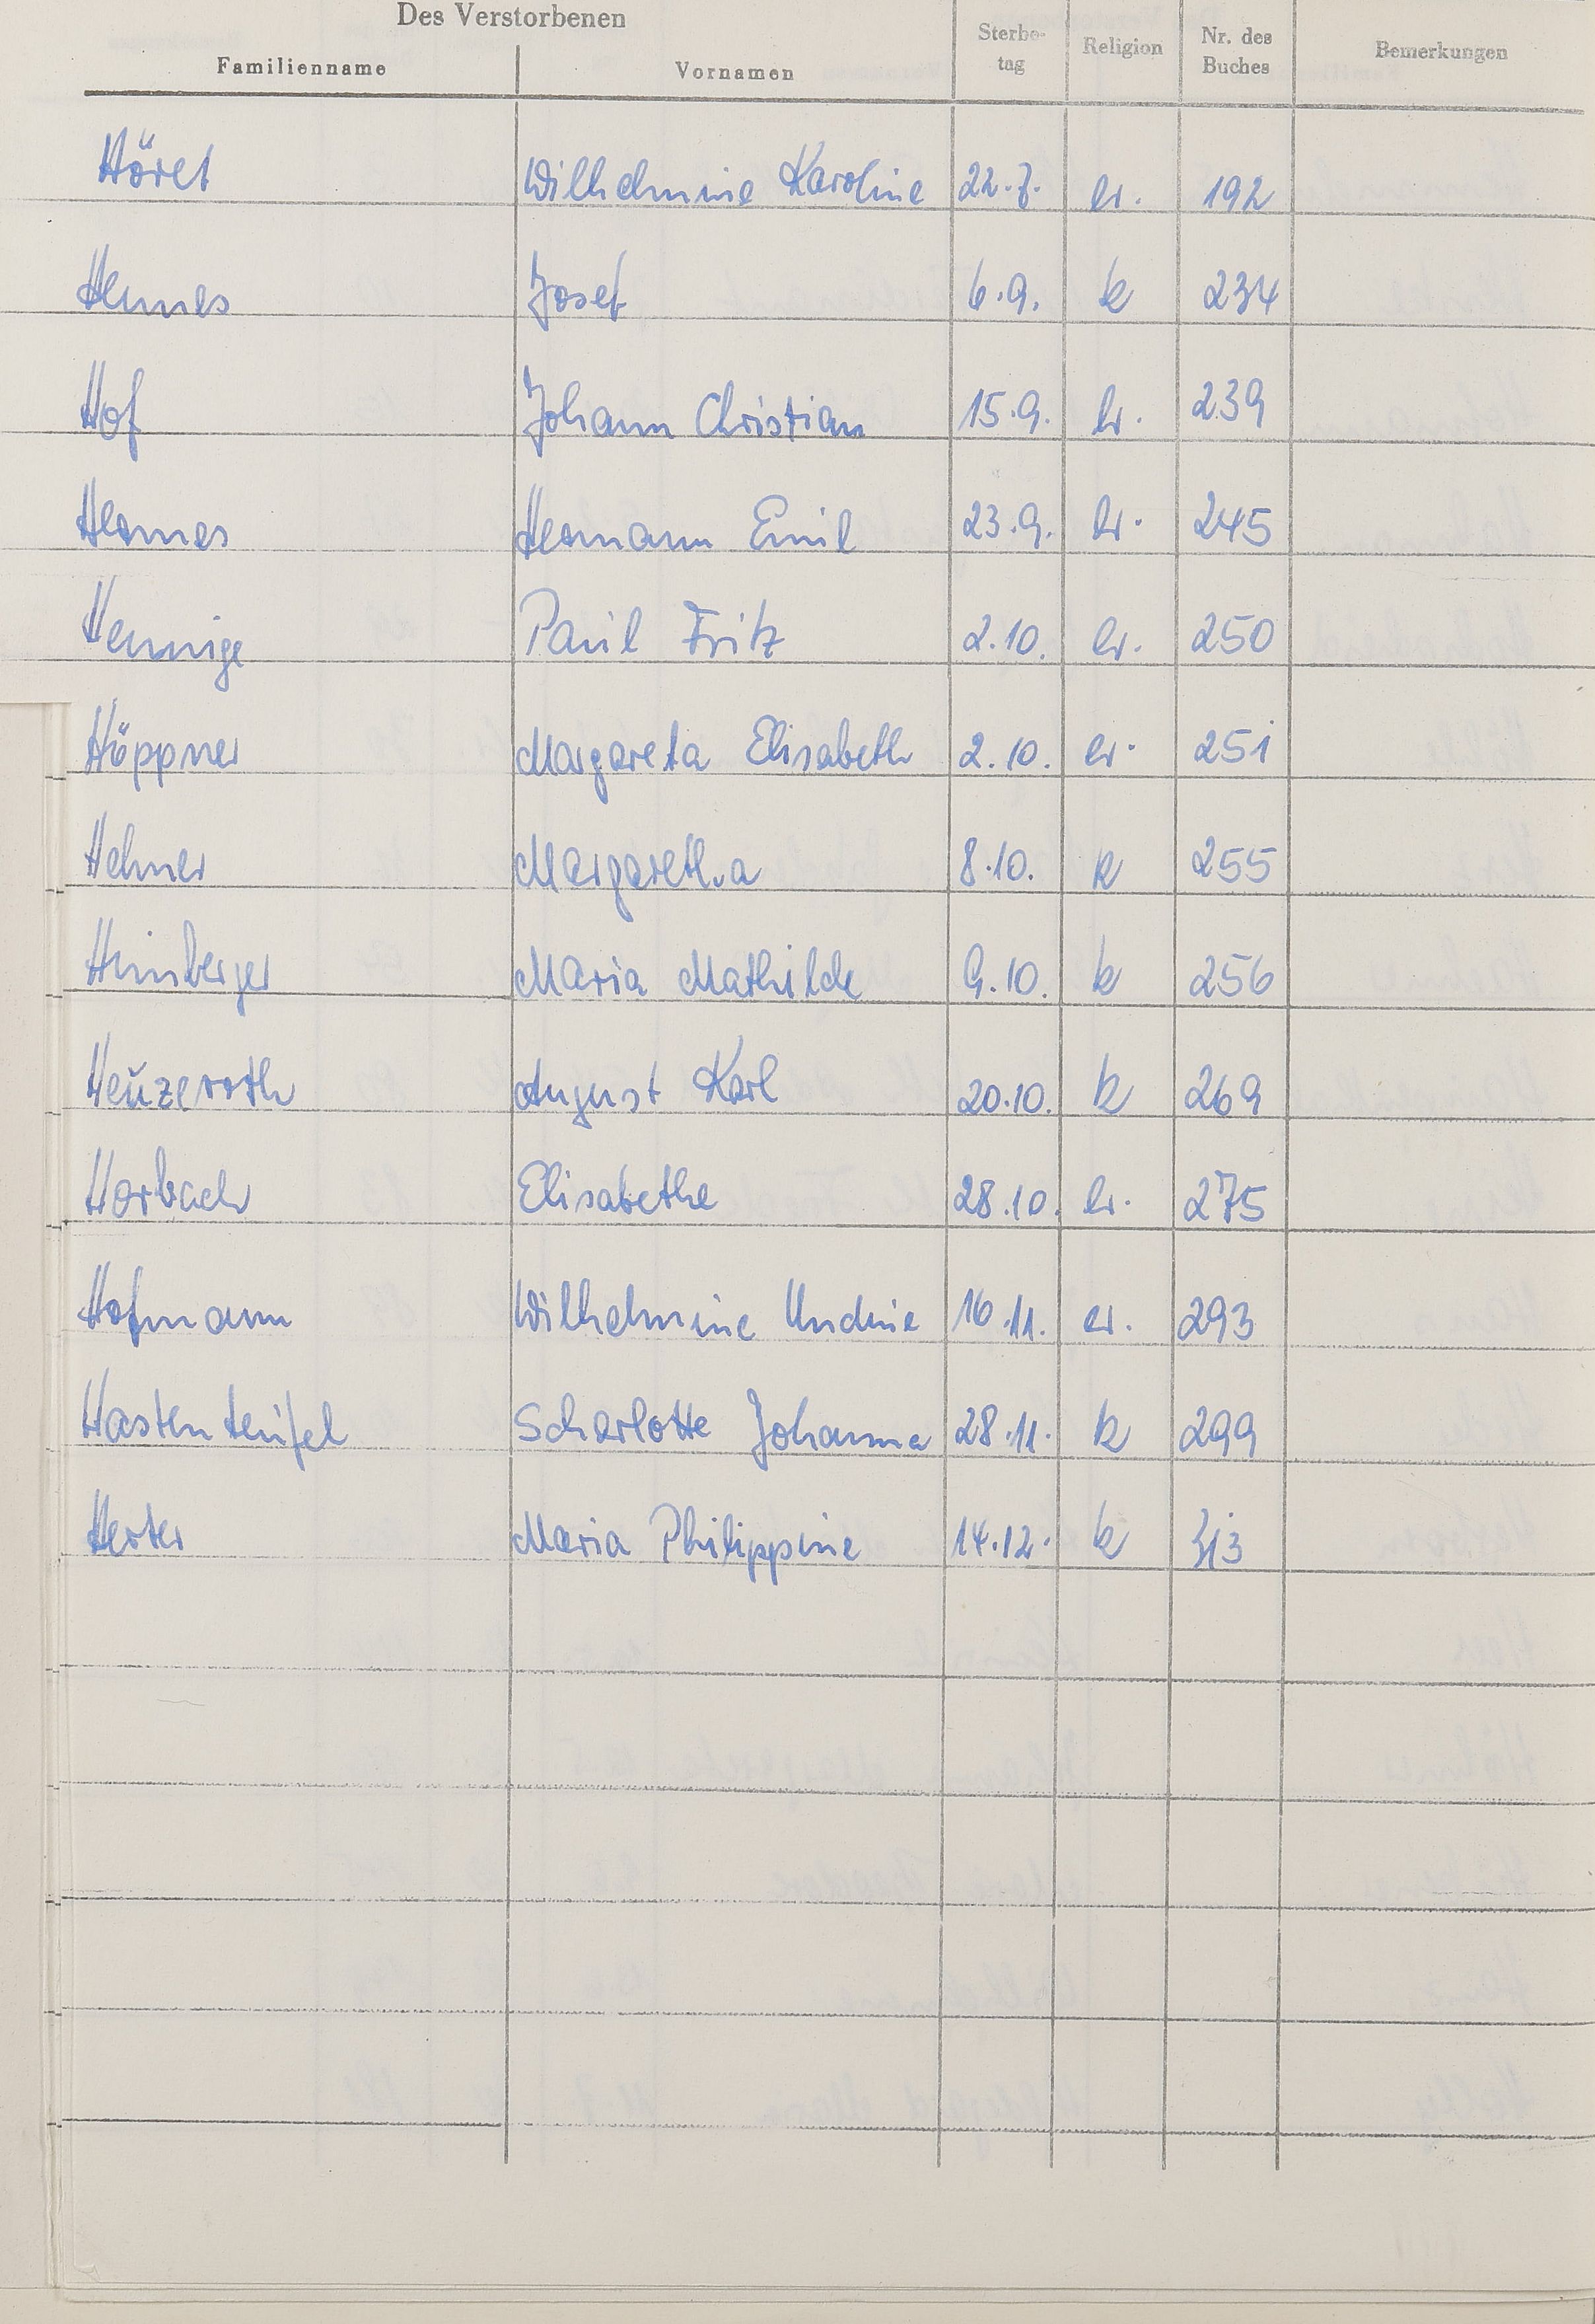 Des Verstorbenen
Familienname Vornamen Sterbe-tag Religion Nr. des Buches Bemerkungen
Höret Wilhelmine Karoline 22.7. ev. 192
Hennes Josef 6.9. k 234
Hof Johann Christian 15.9. ev. 239
Hermes Hermann Emil 23.9. ev. 245
Hennige Paul Fritz 2.10. ev. 250
Höppner Margareta Elisabeth 2.10. ev. 251
Hehner Margaretha 8.10. k 255
Himberger Maria Mathilde 9.10. k 256
Heuzeroth August Karl 20.10. k 269
Horbach Elisabethe 28.10. ev. 275
Hofmann Wilhelmine Undine 16.11. ev. 293
Hastenteufel Scharlotte Johanna 28.11. k 299
Herter Maria Philippine 14.12. k 313